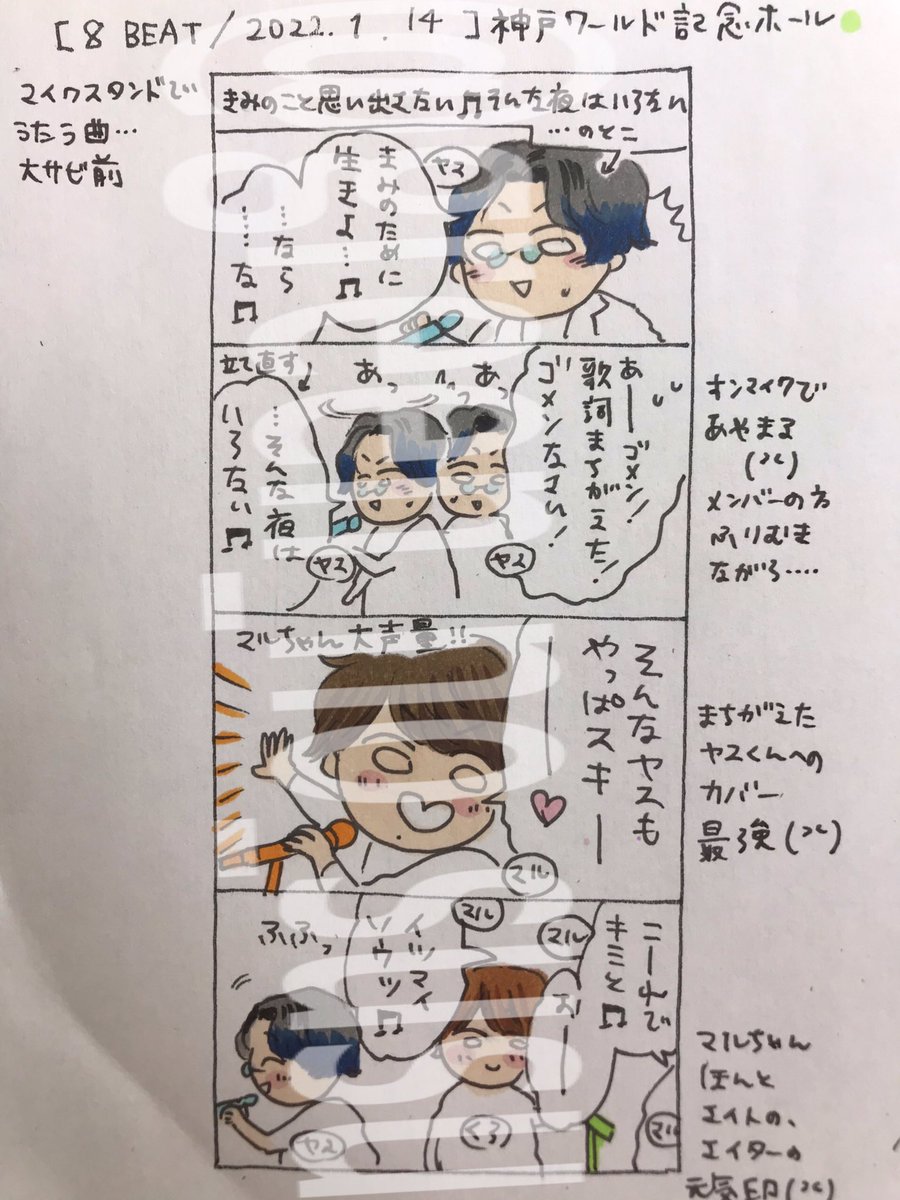 [8 BEAT/2022.1.14]神戸ワールド記念ホール
マイクスタンドで
うたう曲…
大サビ前
きみのこと思い出せない♫そんな夜はいらない
…のとこ
ヤス
きみのために
生きよ…♫
…なら
……な♫
あーゴメン!
歌詞まちがえた!
ゴメンなさい!
あっ
あっ
立て直す
…そんな夜は
いらない♫
ヤス
ヤス
オンマイクで
あやまる
(笑)
メンバーの方
ふりむき
ながら….
マルちゃん大声量!!
そんなヤスも
やっぱスキー
マル
まちがえた
ヤスくんへの
カバー
最強(笑)
キミと♫
マル
おー
マル
イツマイ
ソウッツ♫
ふふっ
ヤス
マル
マルちゃん
ほんと
エイトの、
エイターの
元気印(笑)